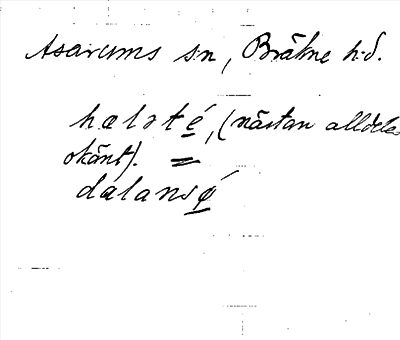 Asarums sn, Bräkne hd.
hałsté, (nästan alldeles
okänt). =
dálansǿ̨